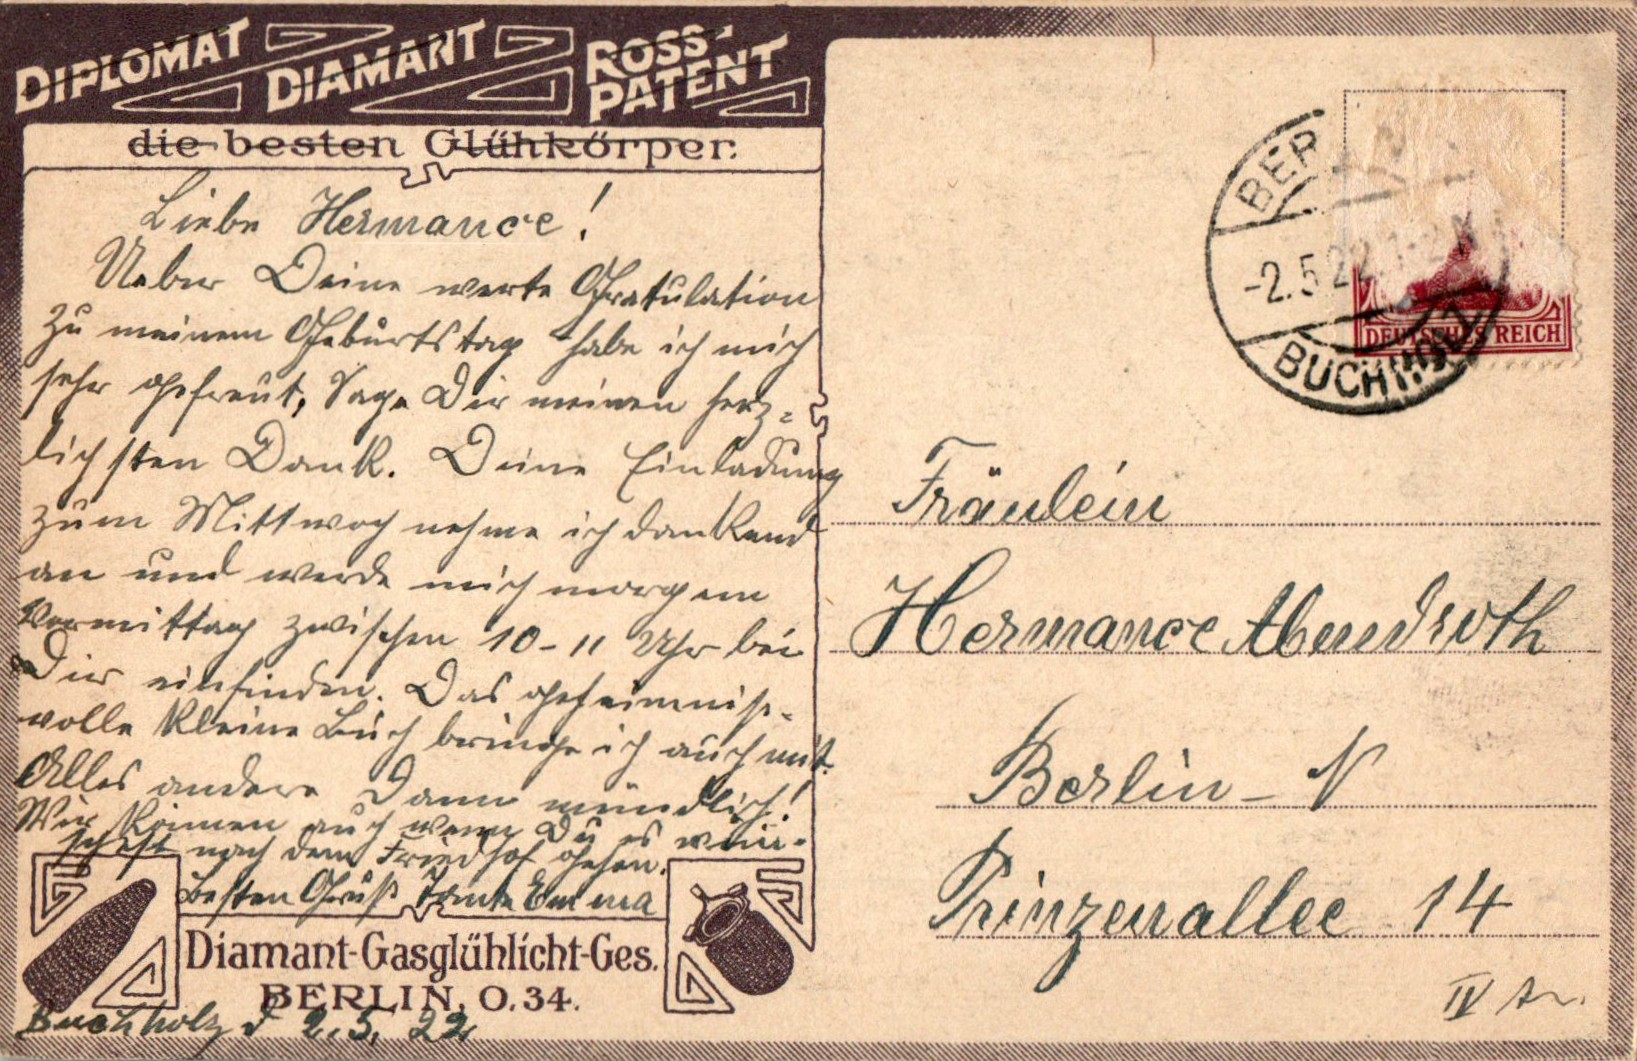 DIPLOMAT DIAMANT ROSS-
PATENT
die besten Glühkörper.
Liebe Hermance!
Ueber Deine werte Gratulation
zu meinem Geburtstag habe ich mich
sehr gefreut, Sage Dir meinen herz-
lichsten Dank. Deine Einladung
zum Mittwoch nehme ich dankend
an und werde mich morgen
Vormittag zwischen 10-11 Uhr bei
Dir einfinden. Das geheimniß-
volle kleine Buch bringe ich auch mit.
Alles andere Dann mündlich!
Wir können auch wenn Du es wün-
schest nach dem Friedhof gehen.
Besten Gruß Tante Emma
Diamant-Gasglühlicht-Ges.
BERLIN, O.34.
Buchholz d 2.5.22
BER
-2.5.22.
BUCHHOLZ
DEUTSCHES REICH
Fräulein
Hermance Abendroth
Berlin-N
Prinzenallee 14
IV